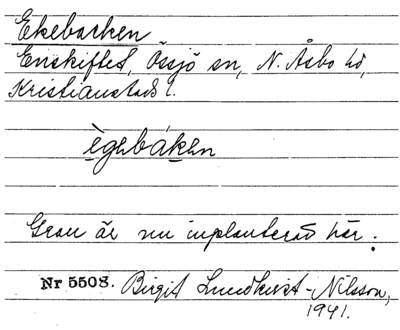 Ekebacken
Enskiftet, Össjö sn, N. Åsbo hd,
Kristianstads l.
ègəbákən
Gran är nu inplanterad här.
Nr 5508. Birgit Lundkvist-Nilsson,
1941.